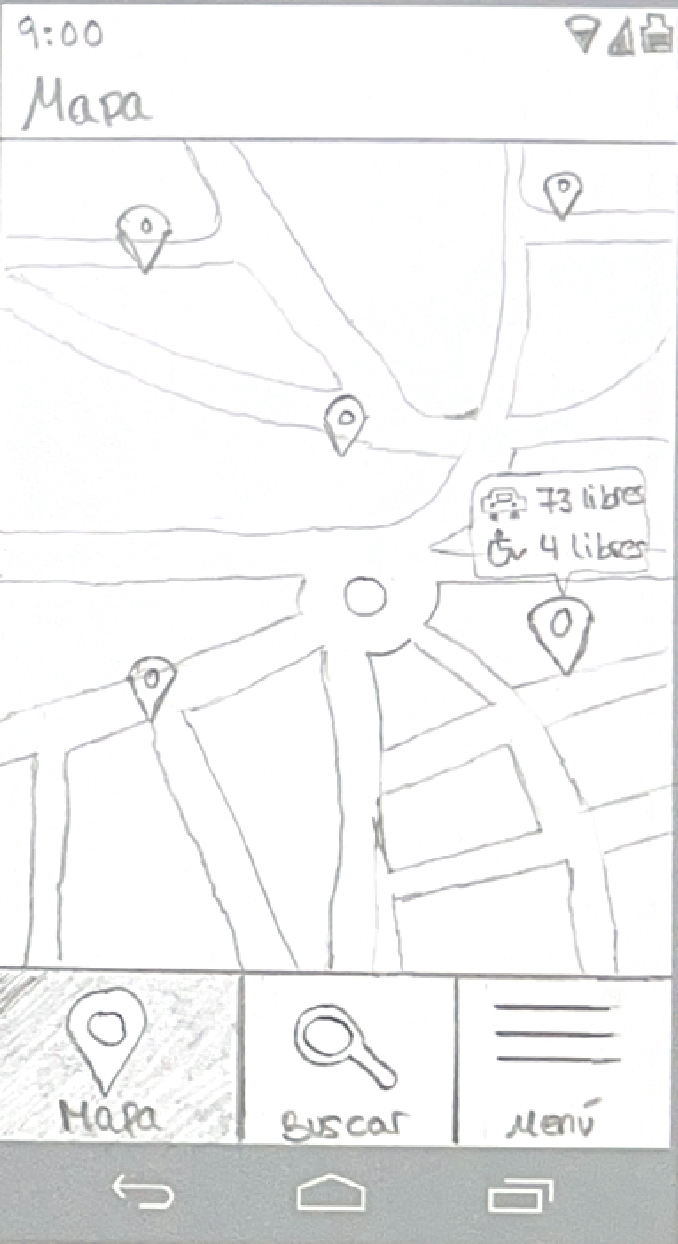 9:00
Mapa
73 libres
4 libres
Mapa
Buscar
Menú